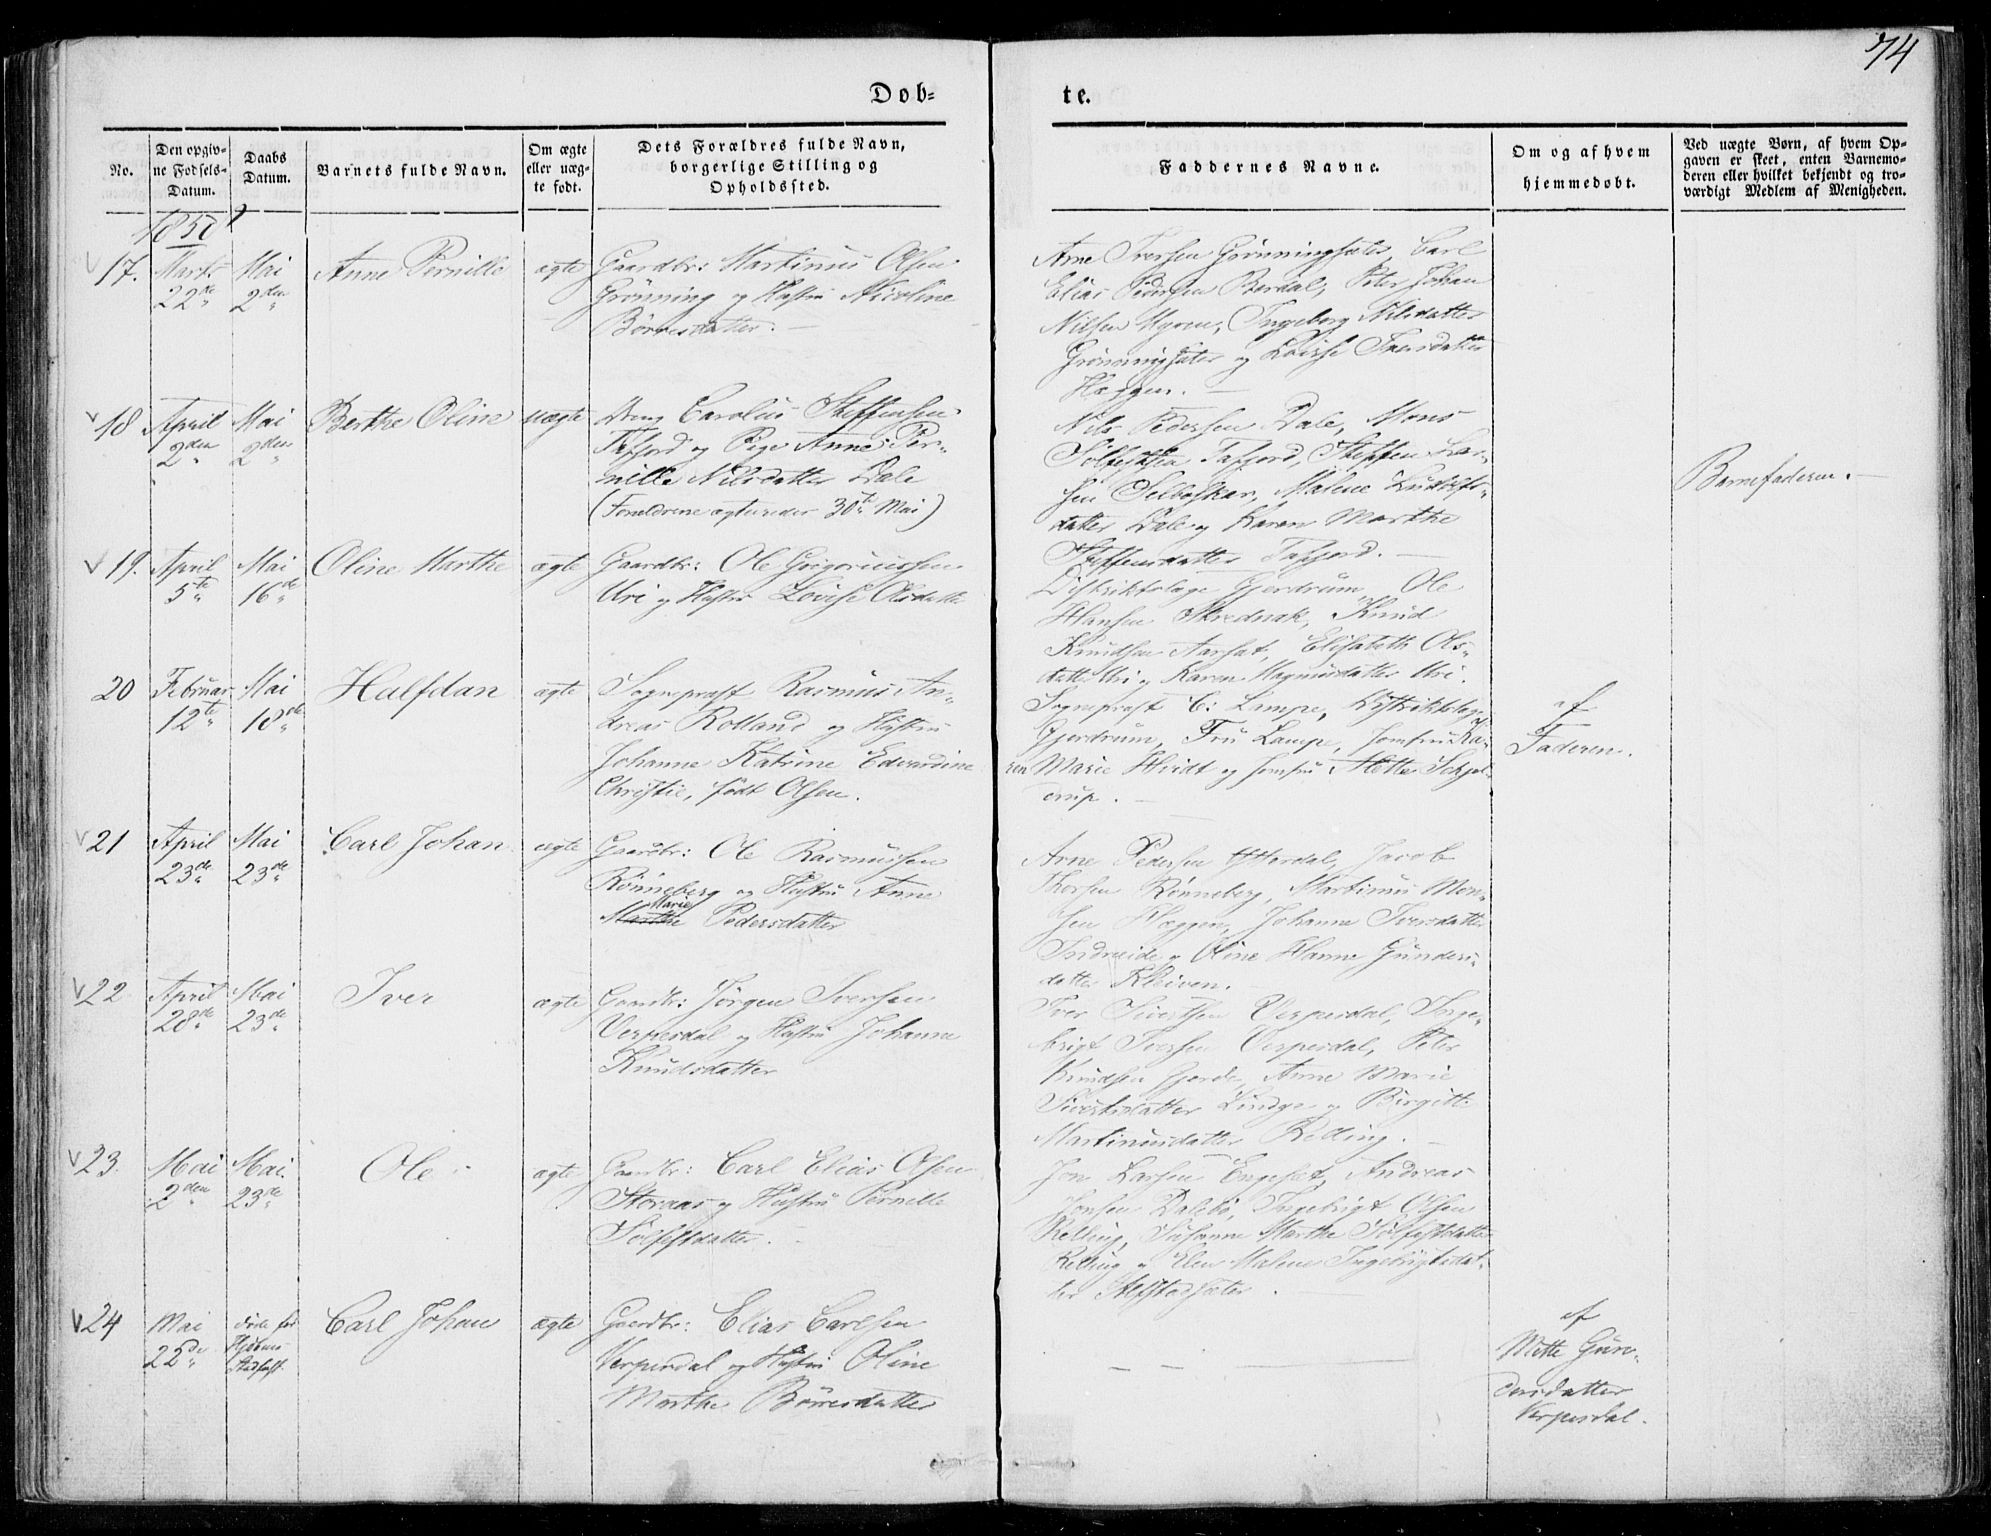 74
Dob=
te.
No.
Den opgiv=
ne Fødsels=
Datum.
Daabs
Datum.
Barnets fulde Navn.
Om ægte
eller uæg=
te født.
Dets Forældres fulde Navn,
borgerlige Stilling og
Opholdssted.
Faddernes Navne.
Om og af hvem
hjemmedøbt.
Ved uægte Børn, af hvem Op=
gaven er skeet, enten Barnemo=
deren eller hvilket bekjendt og tro=
værdigt Medlem af Menigheden.
17.
Marts
22de
Mai
2den
Anne Pernille
ægte
Gaardbr: Martinus Olsen
Grönning og Hustru Nicoline
Börresdatter. —
Arne Iversen Grönningsæter, Carl
Elias Pedersen Berdal, Peter Johan
Nilsen Myren, Ingeborg Nilsdatter
Grönningsæter og Lovise Iversdatter
Hæggen. —
18
April
2den
Mai
2den
Berthe Oline
uægte
Ung Carolus Steffensen
Tafjord og Pige Anne Per=
nille Nilsdatter Dale
(Forældrene ægtevieder 30te Mai)
Nils Pedersen Dale, Mons
Sölfestsen Tafjord, Steffen Lar=
sen Selboskar, Malene
datter Dale og Karen Marthe
Steffensdatter Tafjord. —
Barnefaderen. —
19.
April
5te
Mai
16de
Oline Marthe
ægte
Gaardbr: Ole Grigoriussen
Uri og Hustru Lovise Olsdatter
Distriktslæge Gjerdrum, Ole
Hansen Skrednak, Knud
Knudsen Aarset, Elisabeth Ols=
datter Uri og Karen Magnusdatter Uri.
20
Februar
12te
Mai
18de
Halfdan
ægte
Sognepræst Rasmus An=
dreas Rolland og Hustru
Johanne Katrine Edvardine
Christie, född Olsen.
Sognepræst C: Lampe, Distriktslæge
Gjerdrum, Fru Lampe, Jomfru Ka=
ren Marie Hvidt og Jomfru Mette Schjel=
derup. —
af
Faderen.
21
April
23de
Mai
23de
Carl Johan
ægte
Gaardbr: Ole Rasmussen
Rönneberg og Hustru Anne
Marie
Marthe Pedersdatter
Arne Pedersen Ytterdal, Jacob
Thorsen Rönneberg, Martinus Mon=
sen Hæggen, Johanne Iversdatter
Indreeide og Oline Hanne Gunders=
datter Kleiven. —
22
April
28de
Mai
23de
Iver
ægte
Gaardbr: Jörgen Iversen
Verpesdal og Hustru Johanne
Knudsdatter
Iver Sivertsen Verpesdal, Inge=
brigt Iversen Verpesdal, Peter
Knudsen Gjerde, Anne Marie
Sivertsdatter Linge og Birgitte
Martinusdatter Relling. —
23.
Mai
2den
Mai
23de
Ole
ægte
Gaardbr: Carl Elias Olsen
Storaas og Hustru Pernille
Sölfestdatter. —
Jon Larsen Engeset, Andreas
Jonsen Dalebö, Ingebrigt Olsen
Relling, Susanne Marthe Sölfestdatter
Relling og Elen Malene Ingebrigtsdat=
ter Alstadsæter. —
24
Mai
22de
döde för
Carl Johan
ægte
Gaardbr: Elias Carlsen
Verpesdal og Hustru Oline
Marthe Börresdatter
— — —
af
Mette Gun=
dersdatter
Verpesdal.